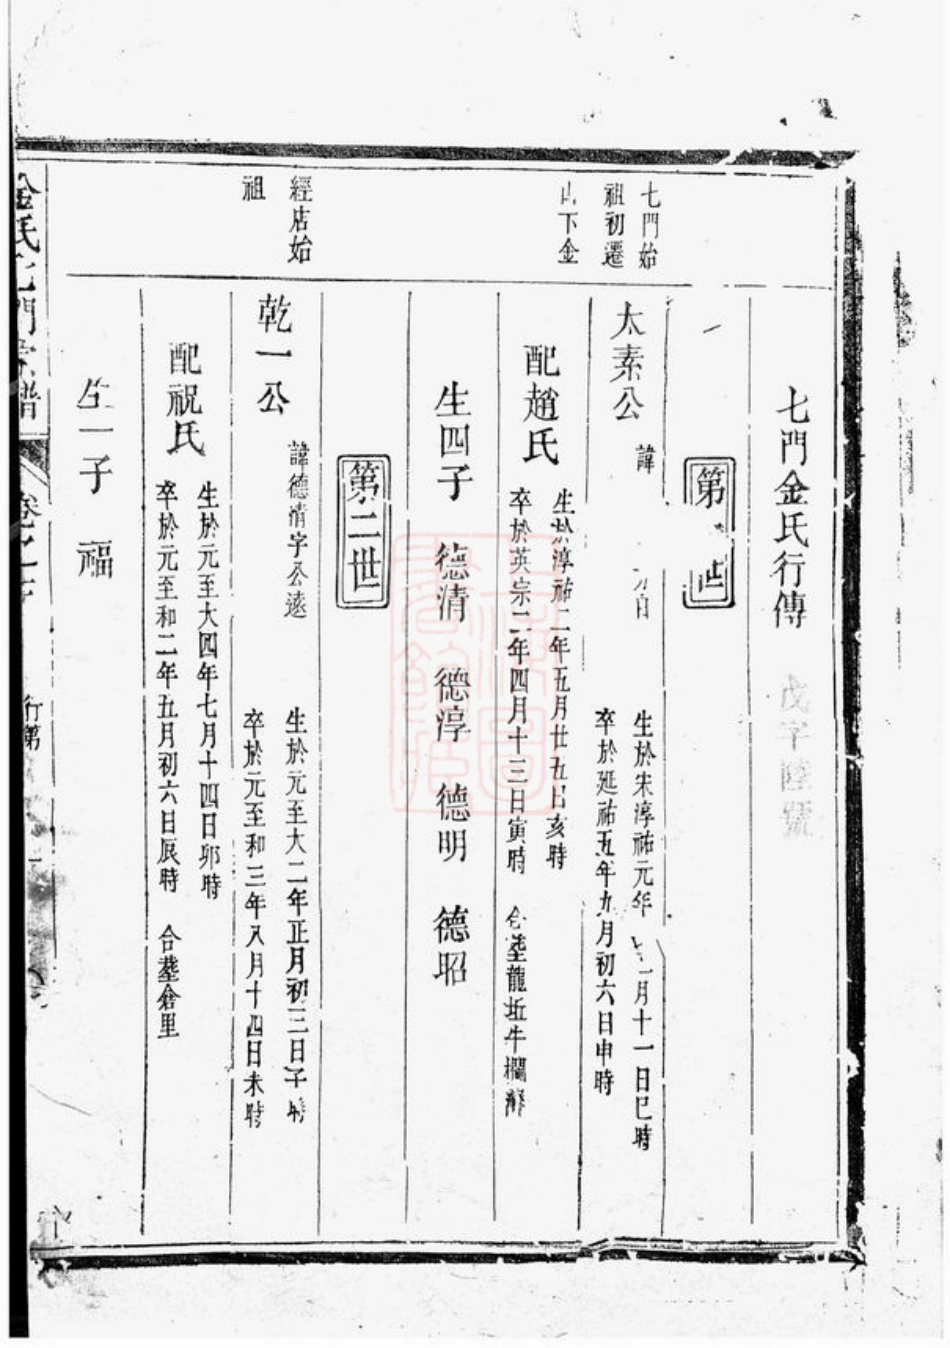 七門金氏行傳
戊字陸號
第 世
七門始
祖初遷
山下金
太素公
諱
生於宋淳祐元年 月十一日巳時
卒於延祐五年九月初六日申時
配趙氏
生於淳祐二年五月廿五日亥時
卒於英宗二年四月十三日寅時 合塟龍坵牛欄
生四子 德清 德淳 德明 德昭
第二世
經店始
祖
乾一公
諱德清字公遠
生於元至大二年正月初三日子時
卒於元至和三年八月十四日未時
配祝氏
生於元至大四年七月十四日卯時
卒於元至和二年五月初六日辰時 合塟倉里
生一子 福
金氏七門宗譜
卷之
行第